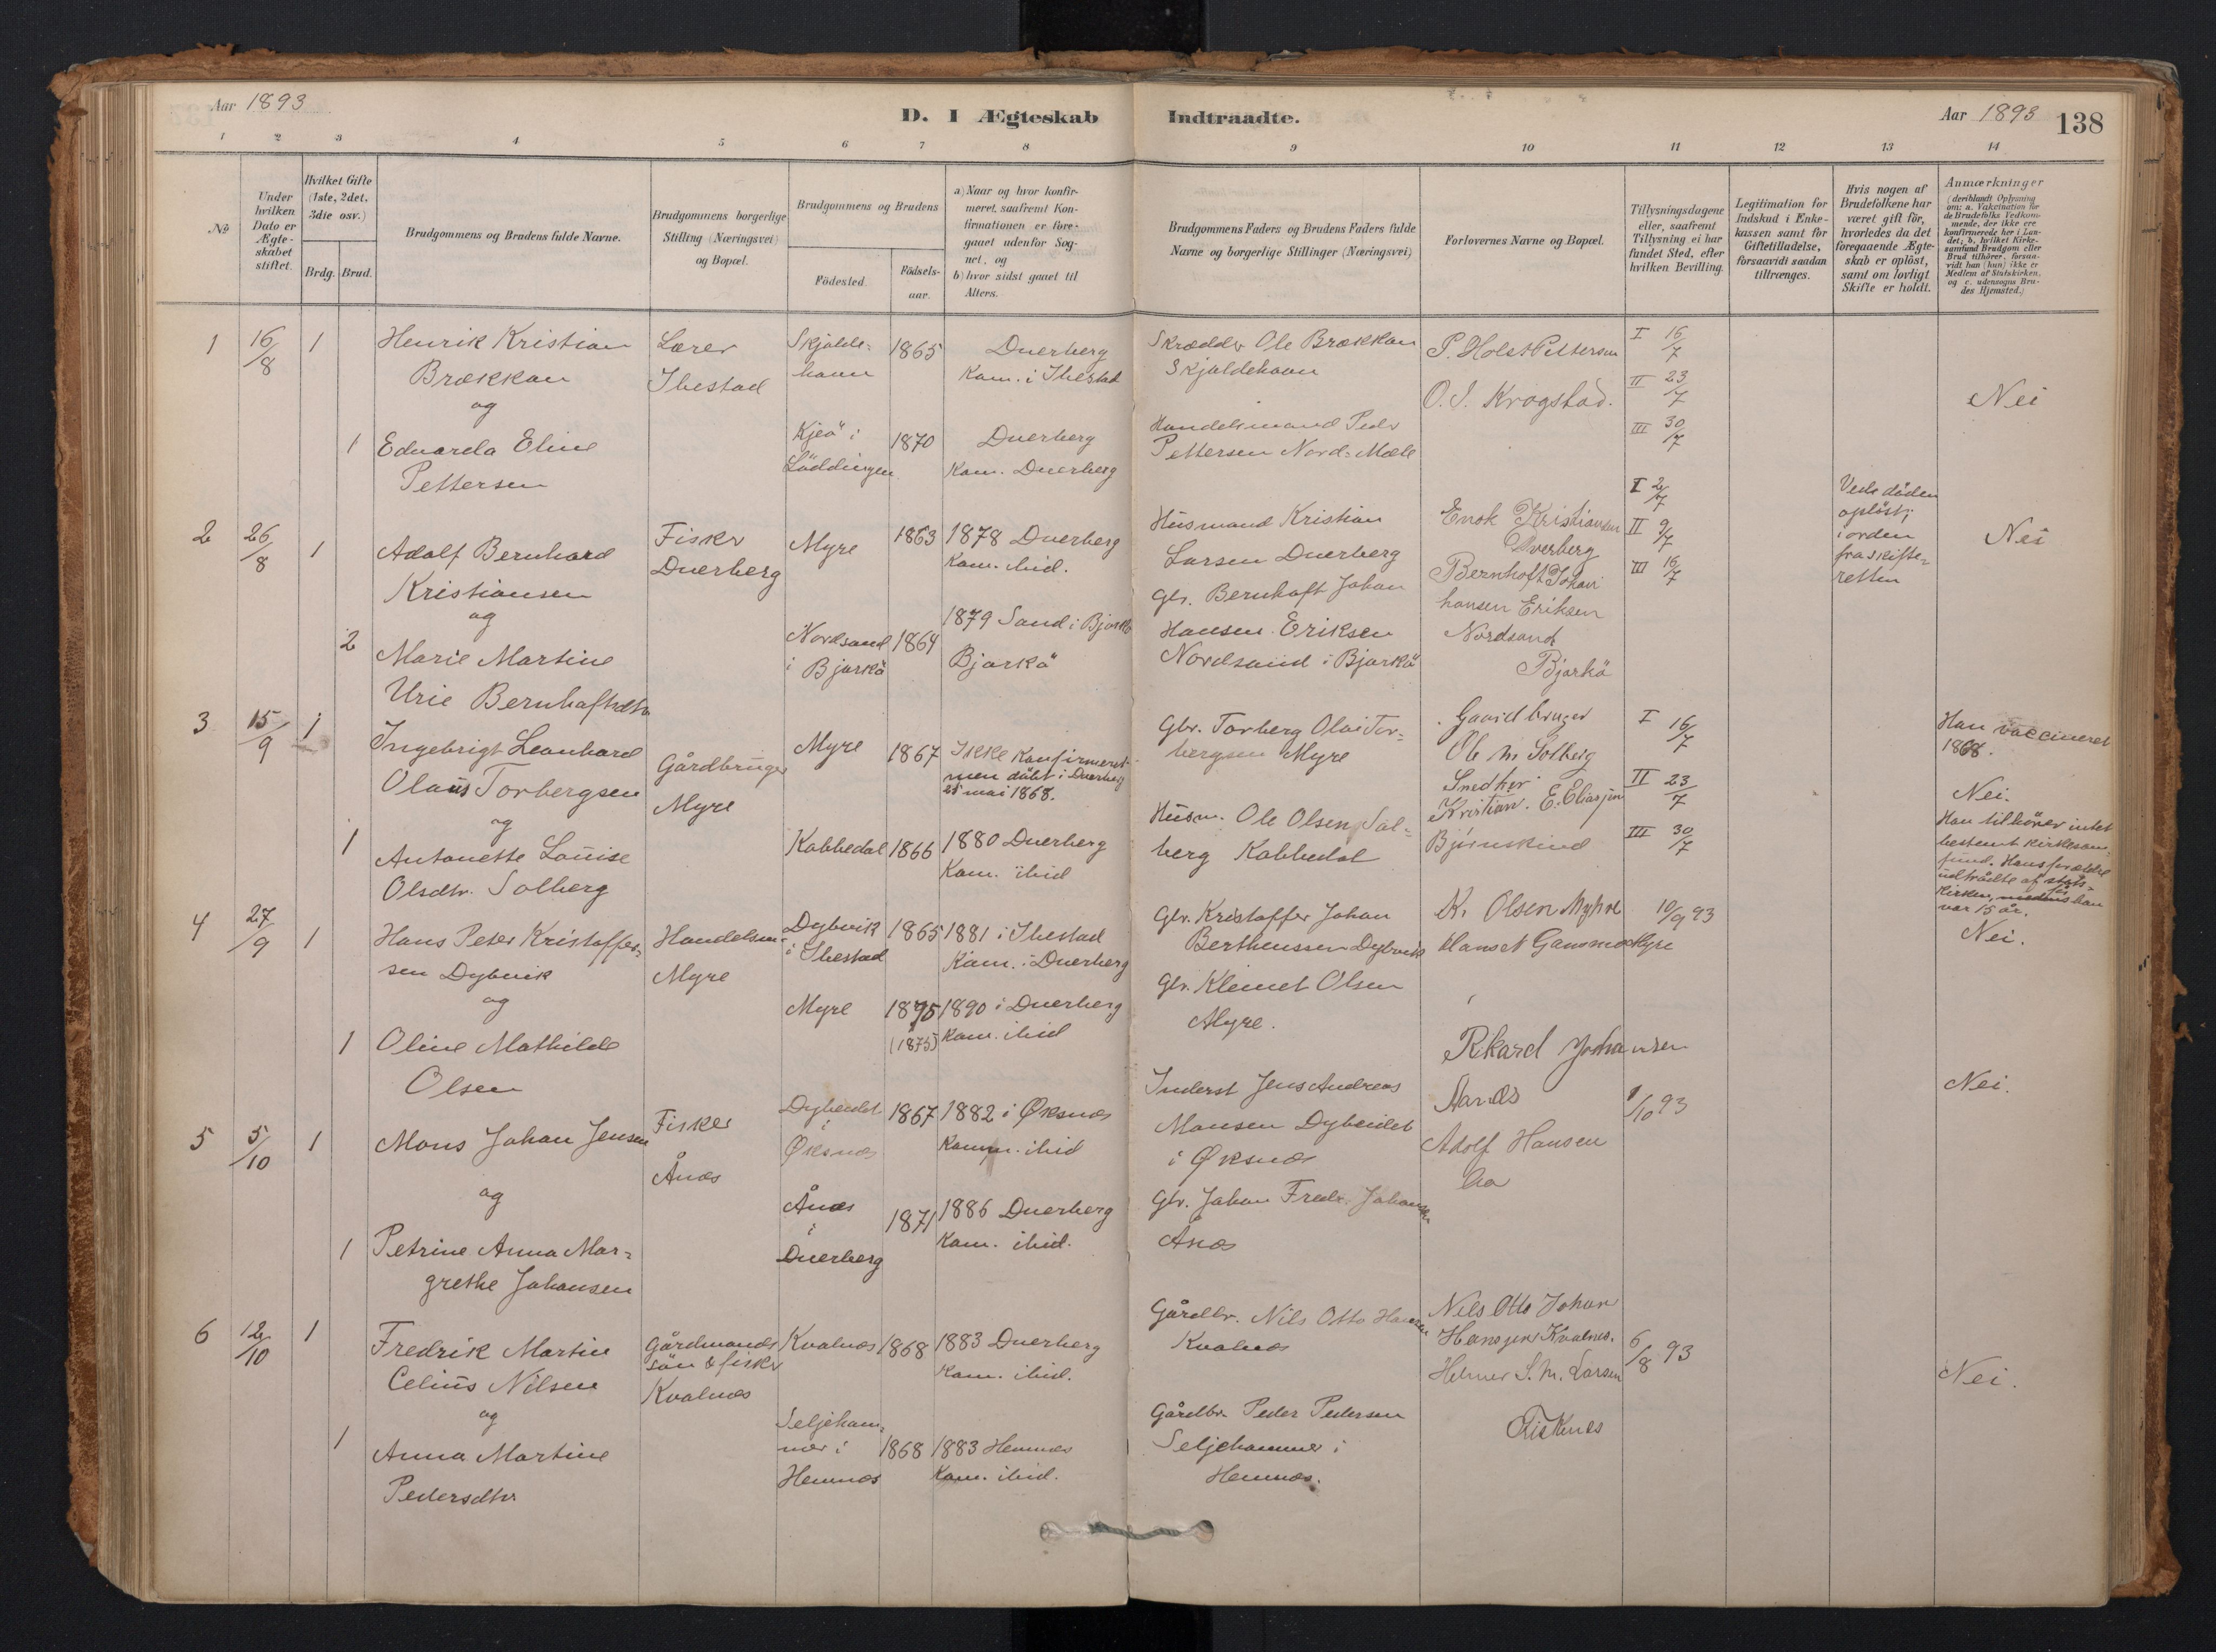 Aar 1893
D. I Ægteskab Indtraadte.
Aar 1893 138
1 2 3 4 5 6 7 8 9 10 11 12 13 14
№
Under hvilken Dato er Ægteskabet stiftet.
Hvilket Gifte (1ste, 2det, 3die osv.)
Brdg. Brud.
Brudgommens og Brudens fulde Navne.
Brudgommens borgerlige Stilling (Næringsvei) og Bopæl.
Brudgommens og Brudens
Fødested.
Fødselsaar.
a) Naar og hvor konfirmeret, saafremt Konfirmationen er foregaaet udenfor Sognet, og
b) hvor sidst gaaet til Alters.
Brudgommens Faders og Brudens Faders fulde Navne og borgerlige Stillinger (Næringsvei)
Forlovernes Navne og Bopæl.
Tillysningsdagene eller, saafremt Tillysning ei har fundet Sted, efter hvilken Bevilling.
Legitimation for Indskud i Enkekassen samt for Giftetilladelse, forsaavidt saadan tiltrænges.
Hvis nogen af Brudefolkene har været gift før, hvorledes da det foregaaende Ægteskab er opløst, samt om lovligt Skifte er holdt.
Anmærkninger
(deriblandt Oplysning om: a. Vakcination for de Brudefolks Vedkommende, der ikke ere konfirmerede her i Landet; b. hvilket Kirkesamfund Brudgom eller Brud tilhører, forsaavidt han (hun) ikke er Medlem af Statskirken, og c. udensogns Brudes Hjemsted.)
1 16/8 1
Henrik Kristian
Brækkan
og
1 Eduarda Eline
Pettersen
Lærer
Ibestad
Skjolde-
havn
1865
Dverberg
Kom. i Ibestad
Kjeö i
Löddingen
1870
Dverberg
Kom. Dverberg
Skrædder Ole Brækkan
Skjoldehavn
Handelsmand Peder
Pettersen Nord-Mæle
P. Holst Pettersen
O. J. Krogstad.
I 16/7
II 23/7
III 30/7
Nei
2 26/8 1
Adolf Bernhard
Kristiansen
og
2 Marie Martine
Urie Bernhaftsdtr
Fisker
Dverberg
Myre
1863
1878 Dverberg
Kom. ibid.
Nordsand
i Bjarkö
1864
1879 Sand i Bjarkö
Bjarkö
Husmand Kristian
Larsen Dverberg
Gbr. Bernhaft Johan
Hansen Eriksen
Nordsand i Bjarkö
Enok Kristiansen
Dverberg
Bernhoft Johan
hansen Eriksen
Nordsand
Bjarkö
I 2/7
II 9/7
III 16/7
Ved döden
oplöst;
i orden
fra skifte-
retten
Nei
3 15/9 1
Ingebrigt Leonhard
Olaus Torbergsen
og
1 Antonette Louise
Olsdtr. Solberg
Gårdbruger
Myre
Myre
1867
Ikke Konfirmeret
men döbt i Dverberg
25 mai 1868.
Kobbedal
1866
1880 Dverberg
Kom. ibid
Gbr. Torberg Olai Tor-
bergsen Myre
Husm. Ole Olsen Sol-
berg Kobbedal
Gaardbruger
Ole M Solberg
Snedker
Kristian. E. Eliasjen
Bjørnskind
I 16/7
II 23/7
III 30/7
Han vaccineret
1868.
Nei.
Han tilhörer intet
bestemt kirkesam-
fund. Hans forældre
udtrådte af stats-
kirken, medens han
var 15 år.
4 27/9 1
Hans Peter Kristoffer-
sen Dybvik
og
1 Oline Mathilde
Olsen
Handelsm.
Myre
Dybvik
i Ibestad
1865
1881 i Ibestad
Kom. i Dverberg
Myre
1875
(1875)
1890 i Dverberg
Kom. ibid
Gbr. Kristoffer Johan
Bertheussen Dybvik
Gbr. Klemet Olsen
Myre.
K. Olsen Myhre
Hans A Gansmo Myre
10/9 93
Nei.
5 5/10 1
Mons Johan Jensen
og
1 Petrine Anna Mar-
grethe Johansen
Fisker
Ånæs
Dybeidet
i
Øksnæs
1867
1882 i Øksnæs
Komm. ibid
Ånæs
i
Dverberg
1871
1886 Dverberg
Kom. ibid.
Inderst Jens Andreas
Monsen Dybeidet
i Øksnæs
Gbr. Johan Fredr. Johansen
Ånæs
Rikard Johansen
Aanæs
Adolf Hansen
Aa
1/10 93
Nei.
6 12/10 1
Fredrik Martin
Celius Nilsen
og
1 Anna Martine
Pedersdtr
Gårdmands
sön & fisker
Kvalnæs
Kvalnæs
1868
1883 Dverberg
Kom. ibid.
Seljeham-
mer i
Hemnæs
1868
1883 Hemnæs
Kom. ibid.
Gårdbr. Nils Otto Hansen
Kvalnæs
Gårdbr. Peder Pedersen
Seljehammer i
Hemnæs.
Nils Otto Johan
Hansjen Kvalnes.
Helmer S. M. Larsen
Fiskenes
6/8 93
Nei.